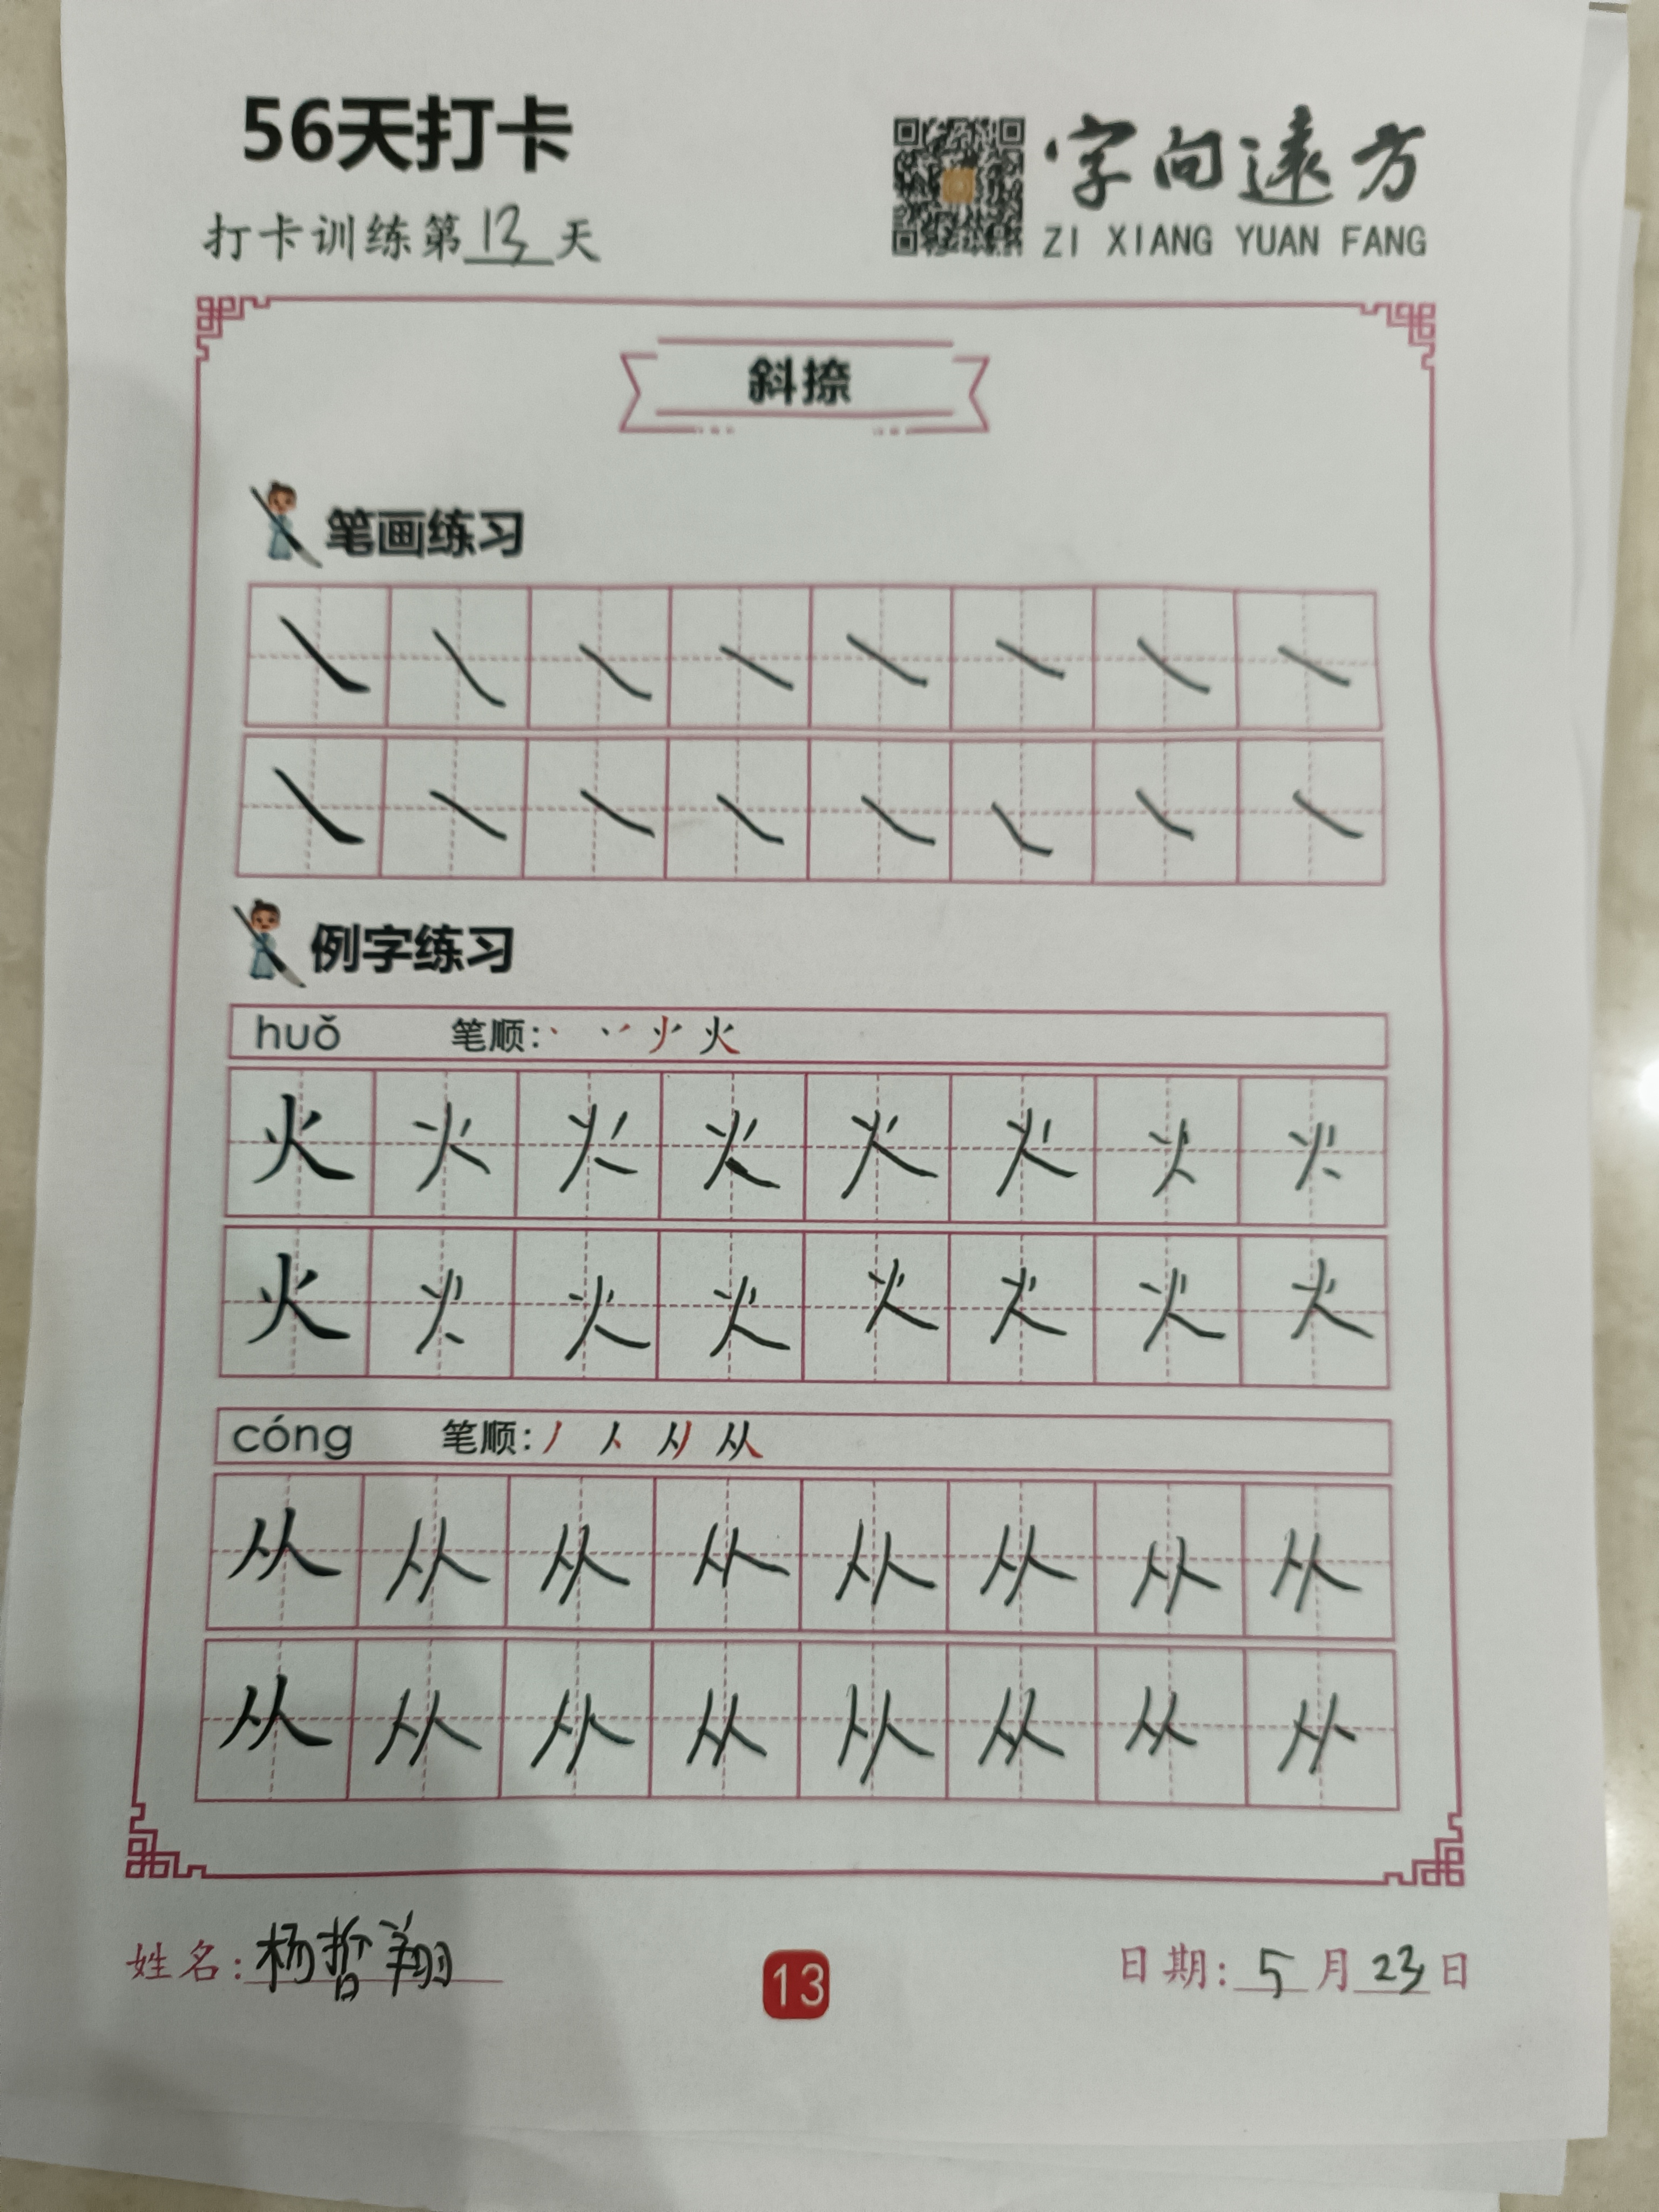 56天打卡
字向遠方
打卡训练第13天
ZI XIANG YUAN FANG
斜捺
笔画练习
㇏㇏㇏㇏㇏㇏㇏㇏
㇏㇏㇏㇏㇏㇏㇏㇏
例字练习
huǒ 笔顺:
火火火火火火火火
火火火火火火火火
cóng 笔顺:
从从从从从从从从
从从从从从从从从
姓名:杨哲翔
13
日期:5月23日